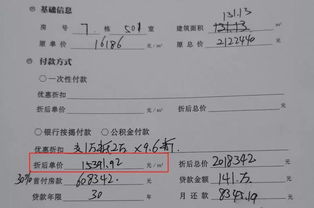 基础信息
131.13
房 号 7. 栋 501 室 建筑面积 131.13 m²
原单价 16186 元/m² 原总价 2122440 元
付款方式
○一次性付款
优惠折扣 折
折后单价 元/m² 折后总价 元
○银行按揭付款 ○公积金付款
优惠折扣 交1万抵2万 ×9.6折
折后单价 15391.92 元/m² 折后总价 2018342 元
30% 首付房款 608342. 元 贷款金额 141.万 元
贷款年限 30 年 月还款 8345.19 元